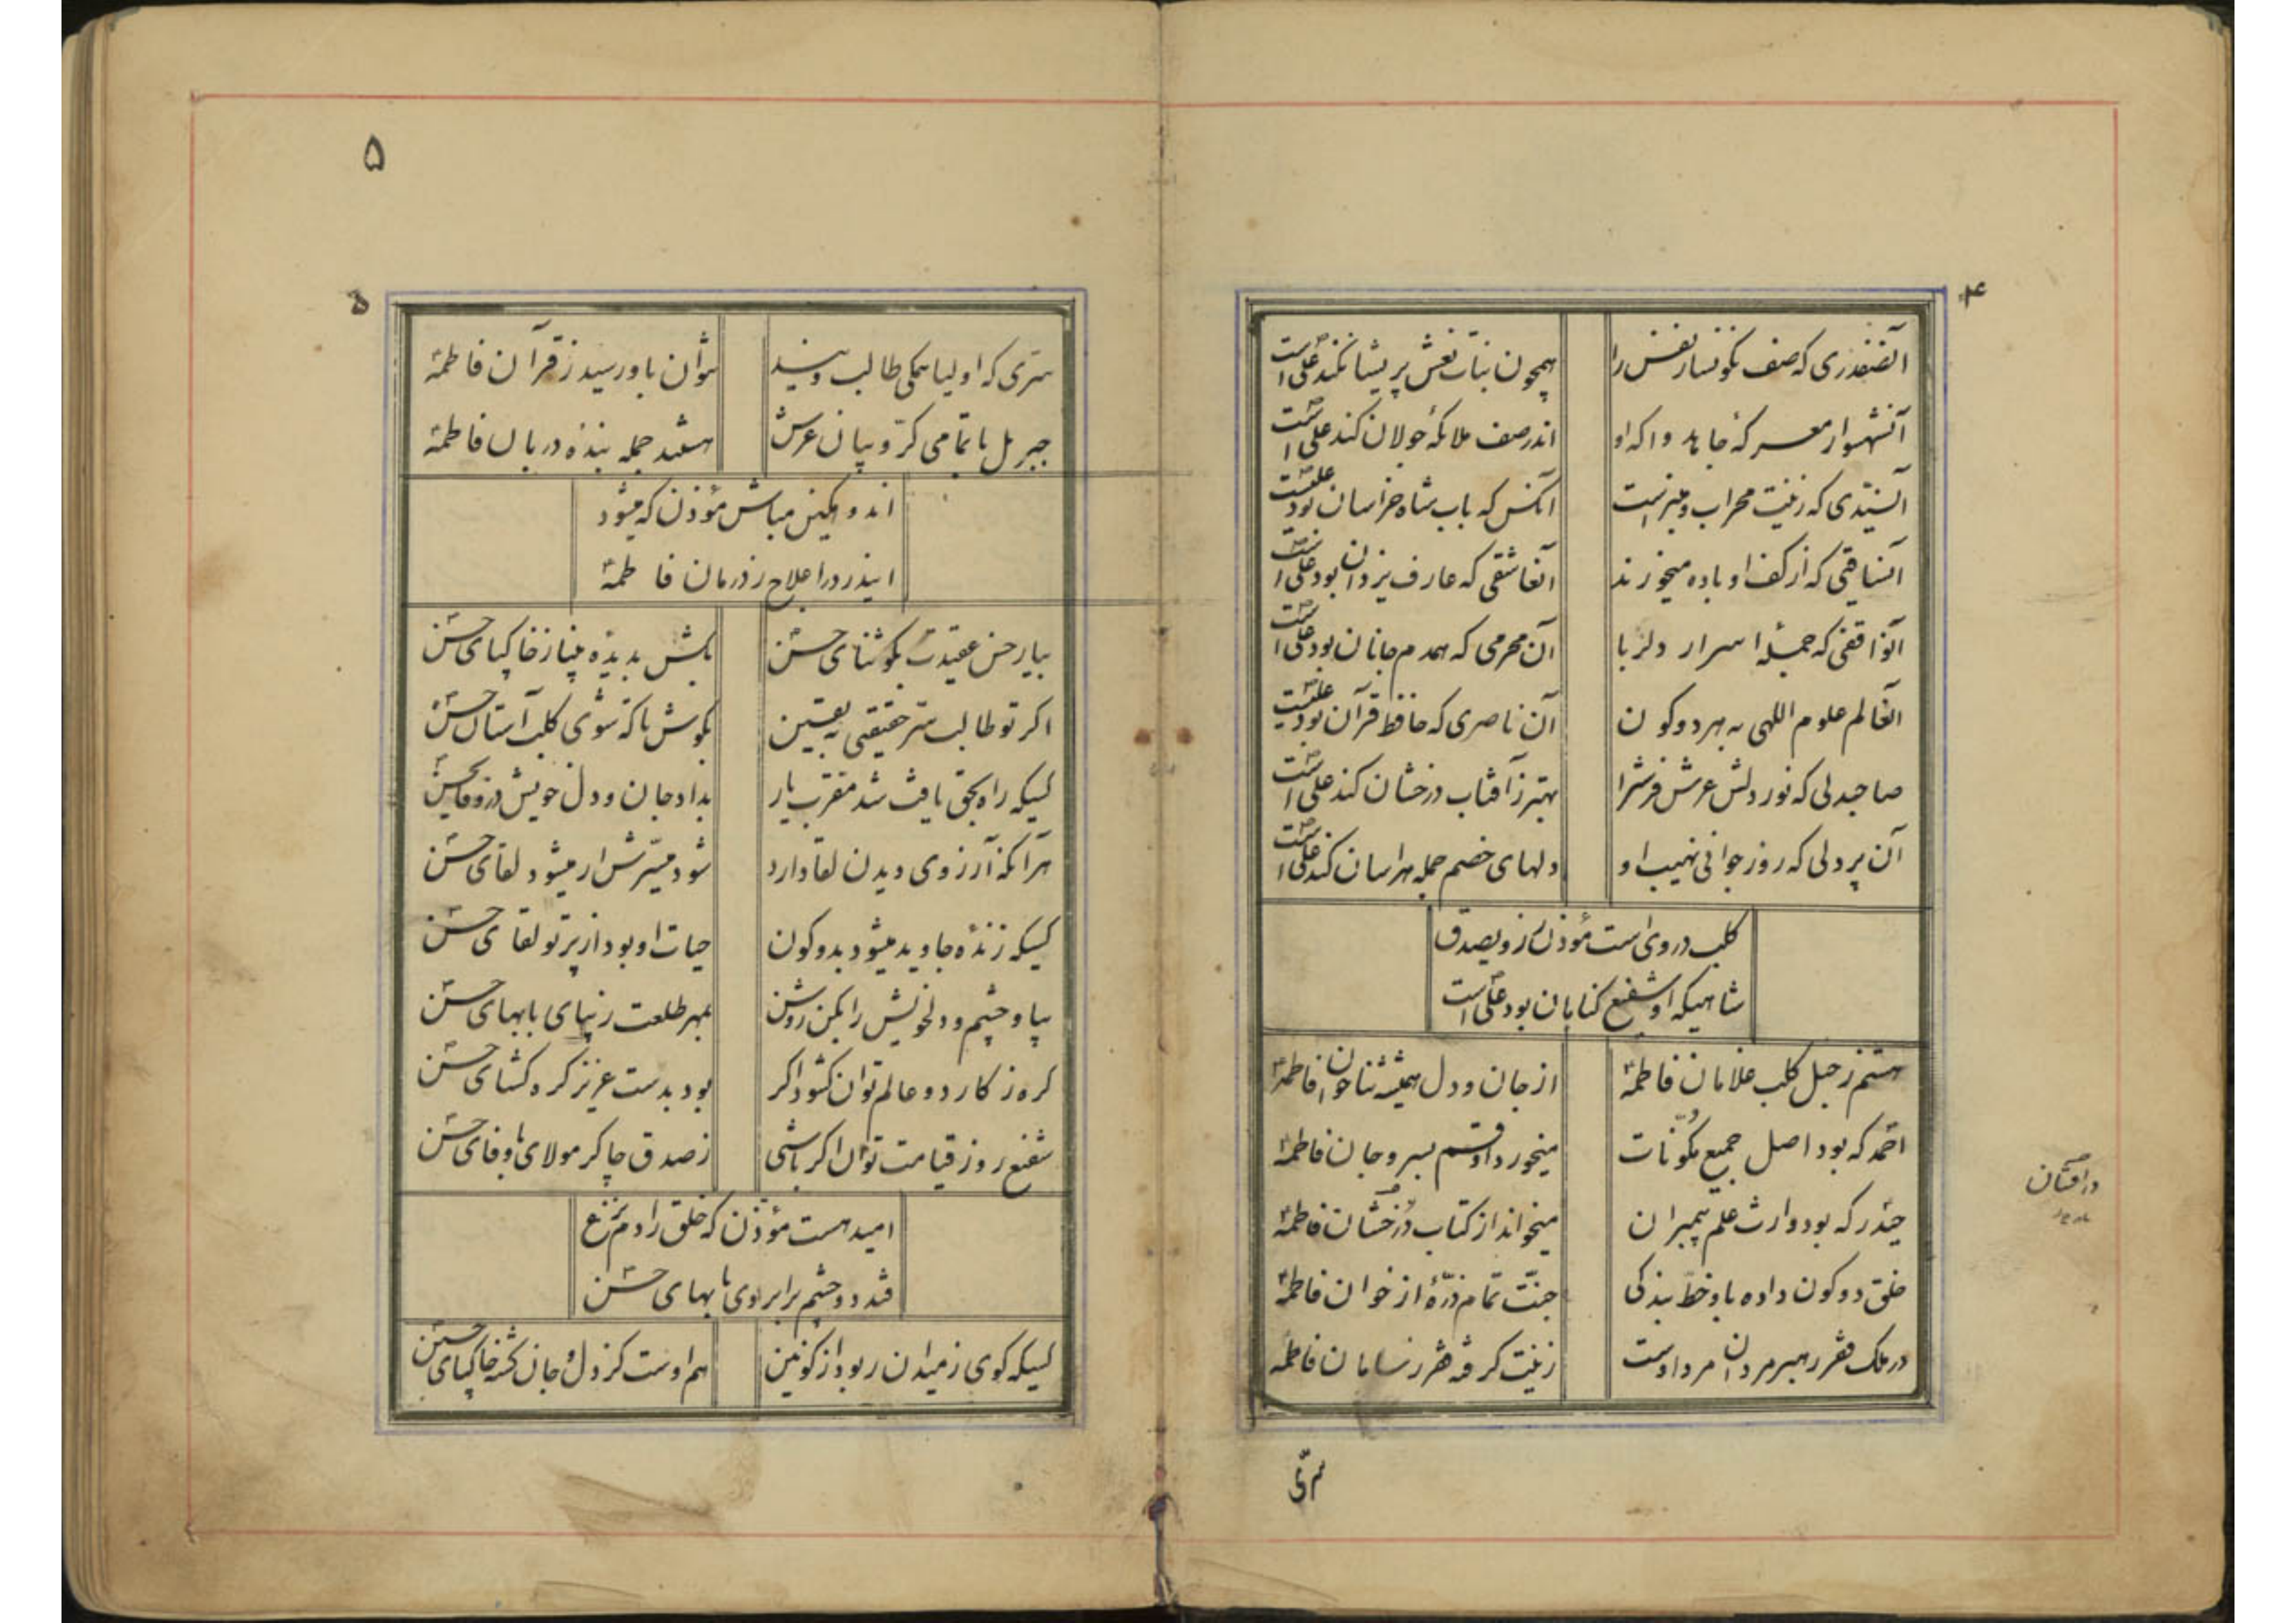 ۴
آنصفدری که صف نکونسار نفس را
همچون بنات نعش پریشان کند علی است
آنشهسوار معرکهٔ جاهد واکه او
اندر صف ملائکه جولان کند علی است
آنسیّدی که زینت محراب و منبر است
آنکس که باب شاه خراسان بود علیست
آنساقیی که از کف او باده میخورند
آنعاشقی که عارف یزدان بود علی است
آنواقفی که جملهٔ اسرار دلربا
آن محرمی که همدم جانان بود علی است
آنعالم علوم اللهی به هر دو کون
آن ناصری که حافظ قرآن بود علیست
صاحبدلی که نور دلش عرش فرش را
بهتر ز آفتاب درخشان کند علی است
آن پردلی که روز جوانی نهیب او
دلهای خصم جمله هراسان کند علی است
کلب در وی است مؤذن ز روی صدق
شاهیکه او شفیع کناهان بود علی است
هستم ز جیل کلب غلامان فاطمهٔ
از جان و دل همیشه ثنا خوان فاطمهٔ
احمد که بود اصل جمیع مکوّنات
میخورد او قسم بسر و جان فاطمهٔ
حیدر که بود وارث علم پیمبران
میخواند از کتاب درخشان فاطمهٔ
خلق دو کون داده باو خطّ بندکی
جنّت تمام ذرّهٔ از خوان فاطمهٔ
در ملک فقر رهبر مردان مرد اوست
زینت کرفته فقر ز سامان فاطمه
درافشان
سرّی
۵
۵
سرّی که اولیا همکی طالب ویند
بتوان باو رسید ز قرآن فاطمهٔ
جبریل با تمامی کرّوبیان عرش
هستند جمله بنده دربان فاطمهٔ
اندوهکین مباش مؤذن که میشود
ایندرد را علاج ز درمان فاطمهٔ
بیار حسن عقیدت بکو ثنای حسن
بکش بدیدهٔ بینا ز خاکپای حسن
اکر تو طالب سرّ حقیقتی به یقین
بکوش تا که شوی کلب آستان حسن
کسیکه راه بحق یافت شد مقرب یار
بداد جان و دل خویش در وفای حسن
هر آنکه آرزوی دیدن لقا دارد
شود میسّرش ار میشود لقای حسن
کسیکه زندهٔ جاوید میشود بدو کون
حیات او بود از پرتو لقای حسن
بیا و چشم و دل خویش را بکن روشن
بمهر طلعت زیبای با بهای حسن
کره ز کار دو عالم توان کشود اکر
بود بدست عزیز کره کشای حسن
شفیع روز قیامت توان اکر باشی
ز صدق چاکر مولای با وفای حسن
امید هست مؤذن که خلق را دم نزع
فتد دو چشم برابروی با بهای حسن
کسیکه کوی ز میدان ربود از کونین
هم اوست کز دل و جان کشته خاکپای حسین